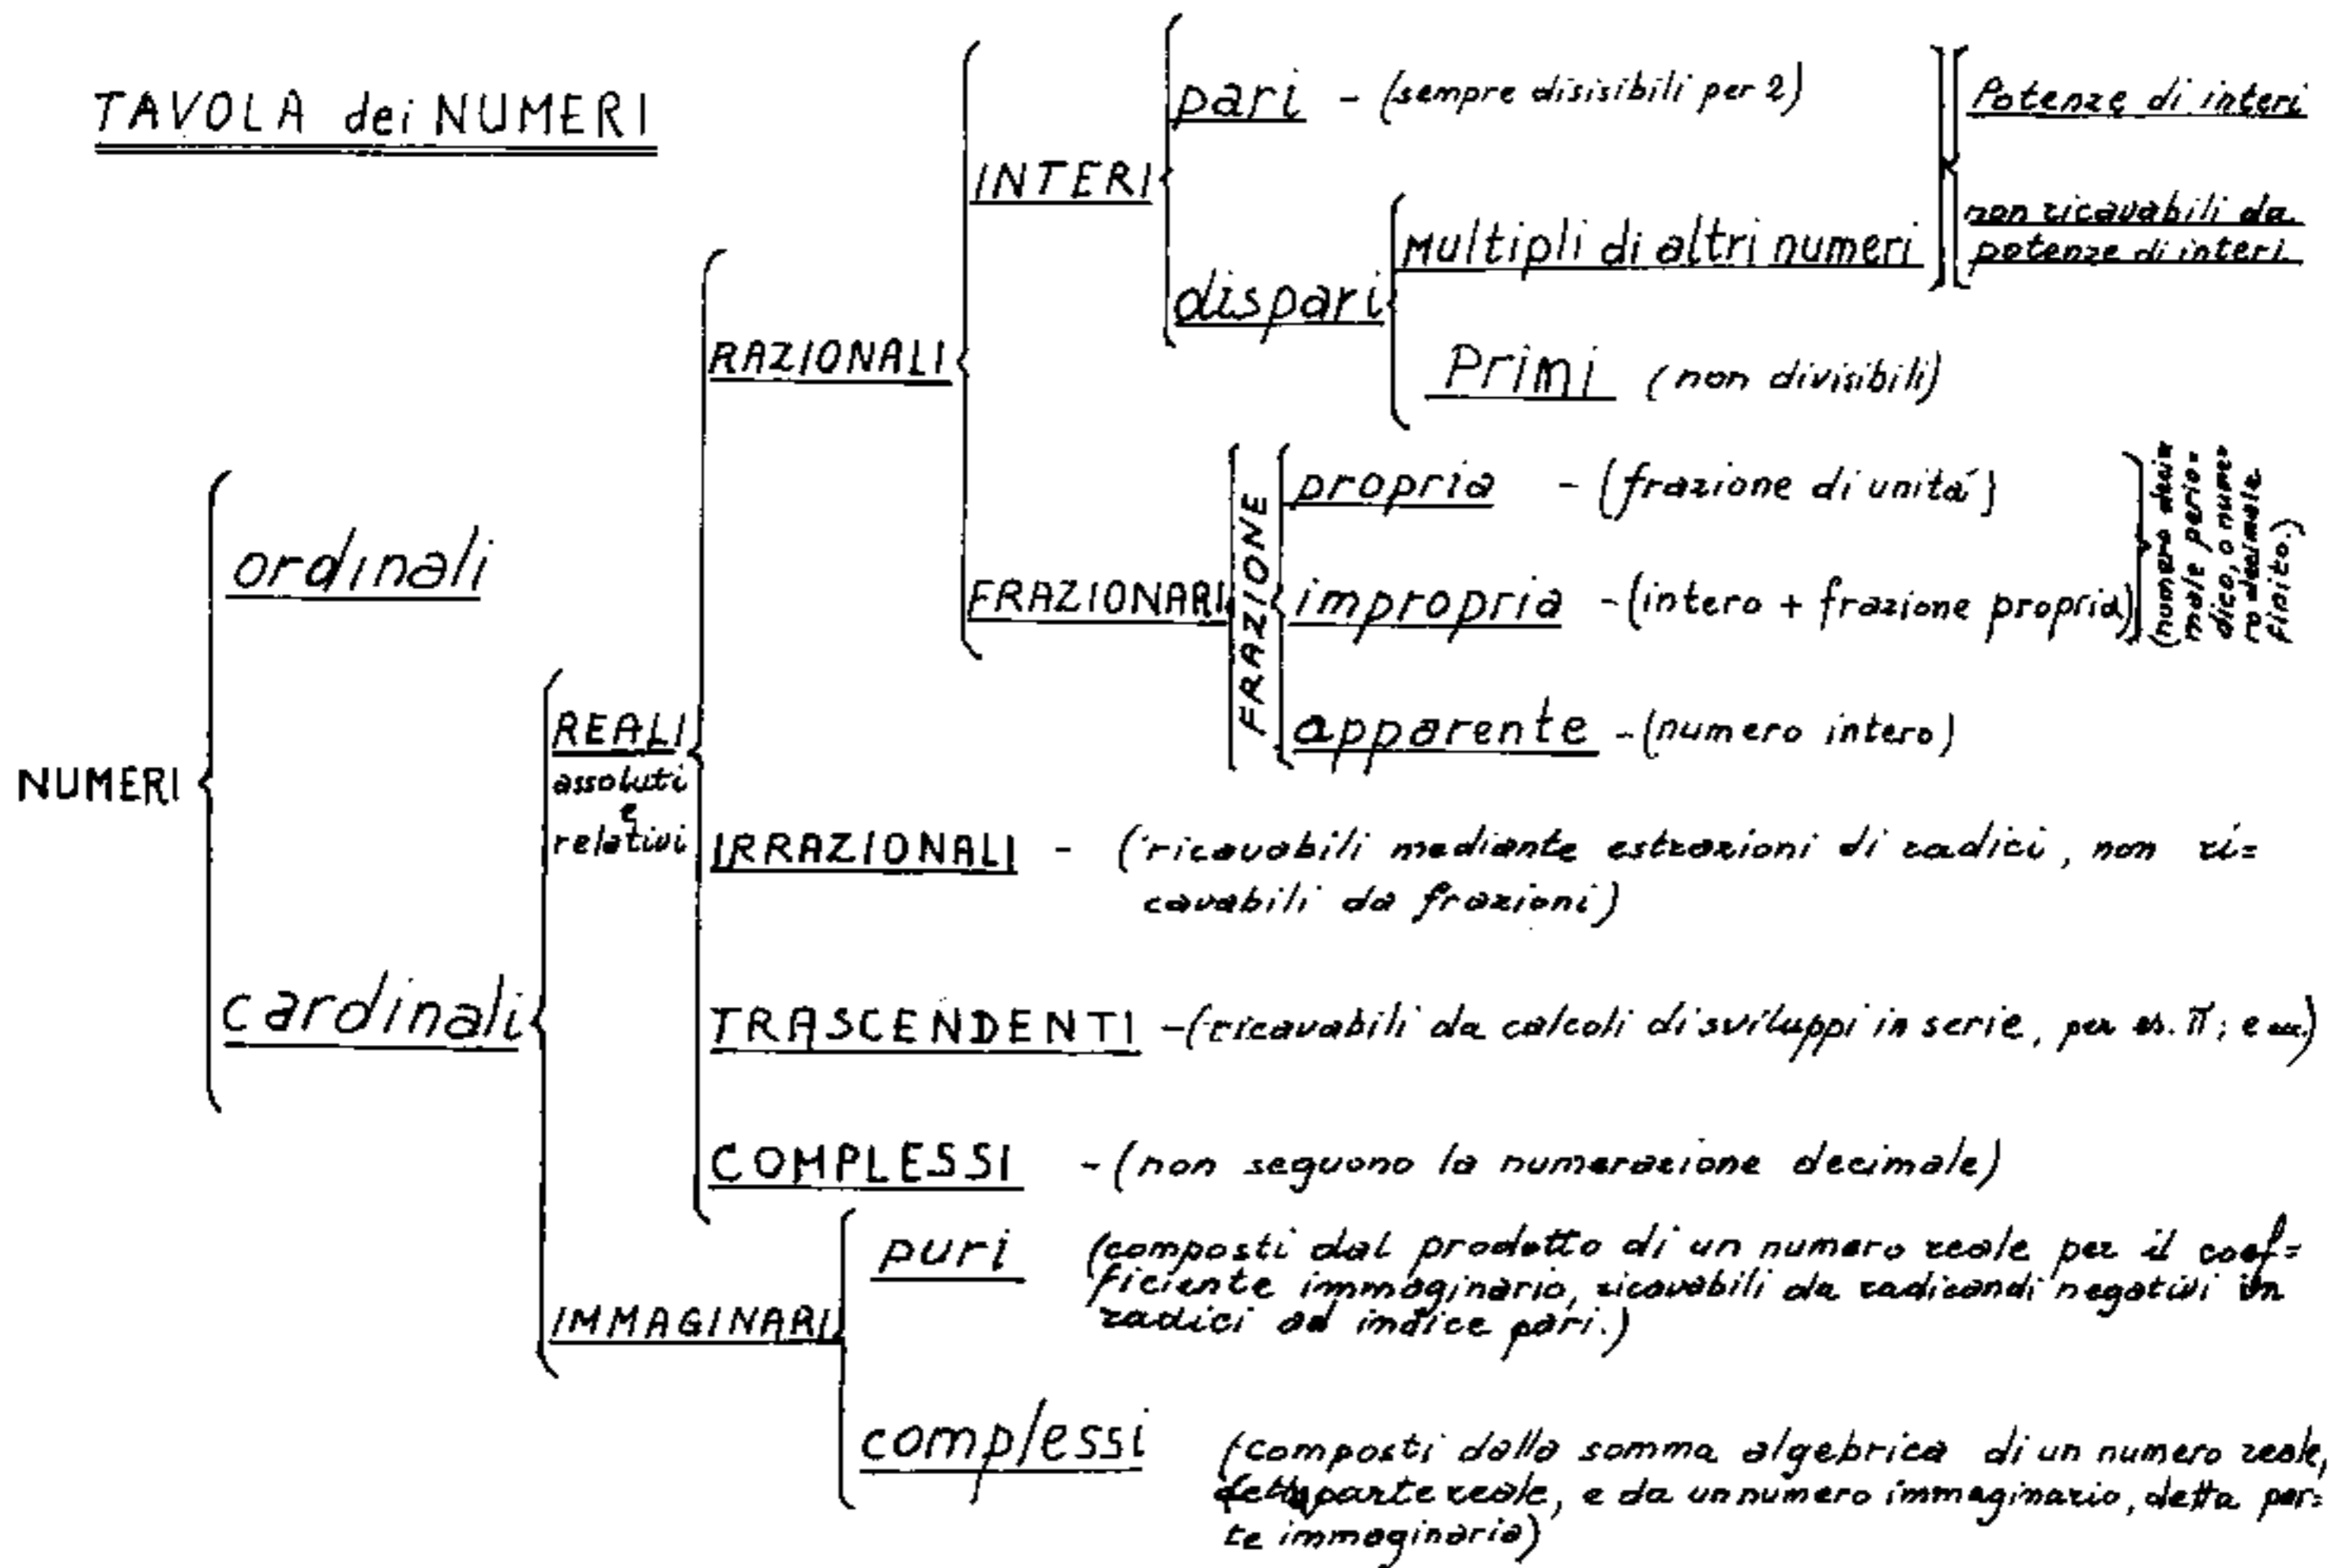 TAVOLA dei NUMERI
NUMERI
ordinali
cardinali
REALI
assoluti
e
relativi
RAZIONALI
INTERI
pari - (sempre disisibili per 2)
dispari
Multipli di altri numeri
Primi (non divisibili)
Potenze di interi
non ricavabili da
potenze di interi
FRAZIONARI
FRAZIONE
propria - (frazione di unitá)
impropria - (intero + frazione propria)
apparente - (numero intero)
(numero deci=
male perio=
dico, o nume=
ro decimale
finito.)
IRRAZIONALI - (ricavabili mediante estrazioni di radici, non ri=
cavabili da frazioni)
TRASCENDENTI - (ricavabili da calcoli di sviluppi in serie, per es. π; e ecc.)
COMPLESSI - (non seguono la numerazione decimale)
IMMAGINARI
puri (composti dal prodotto di un numero reale per il coef=
ficiente immaginario, ricavabili da radicandi negativi in
radici ad indice pari.)
complessi (composti dalla somma algebrica di un numero reale,
detta parte reale, e da un numero immaginario, detta par=
te immaginaria)